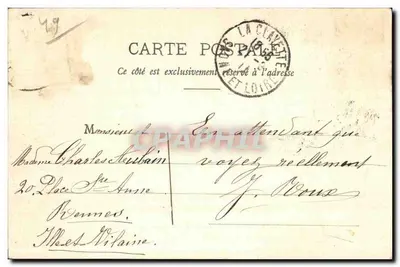 49
CARTE POSTALE
LA CLAYETTE
SAONE ET LOIRE
Ce côté est exclusivement réservé à l'adresse
Monsieur et
Madame Charles Aubain
20, Place Ste Anne
Rennes.
Ille et Vilaine.
En attendant que
voyez réellement
J. Roux